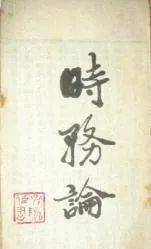 時務論